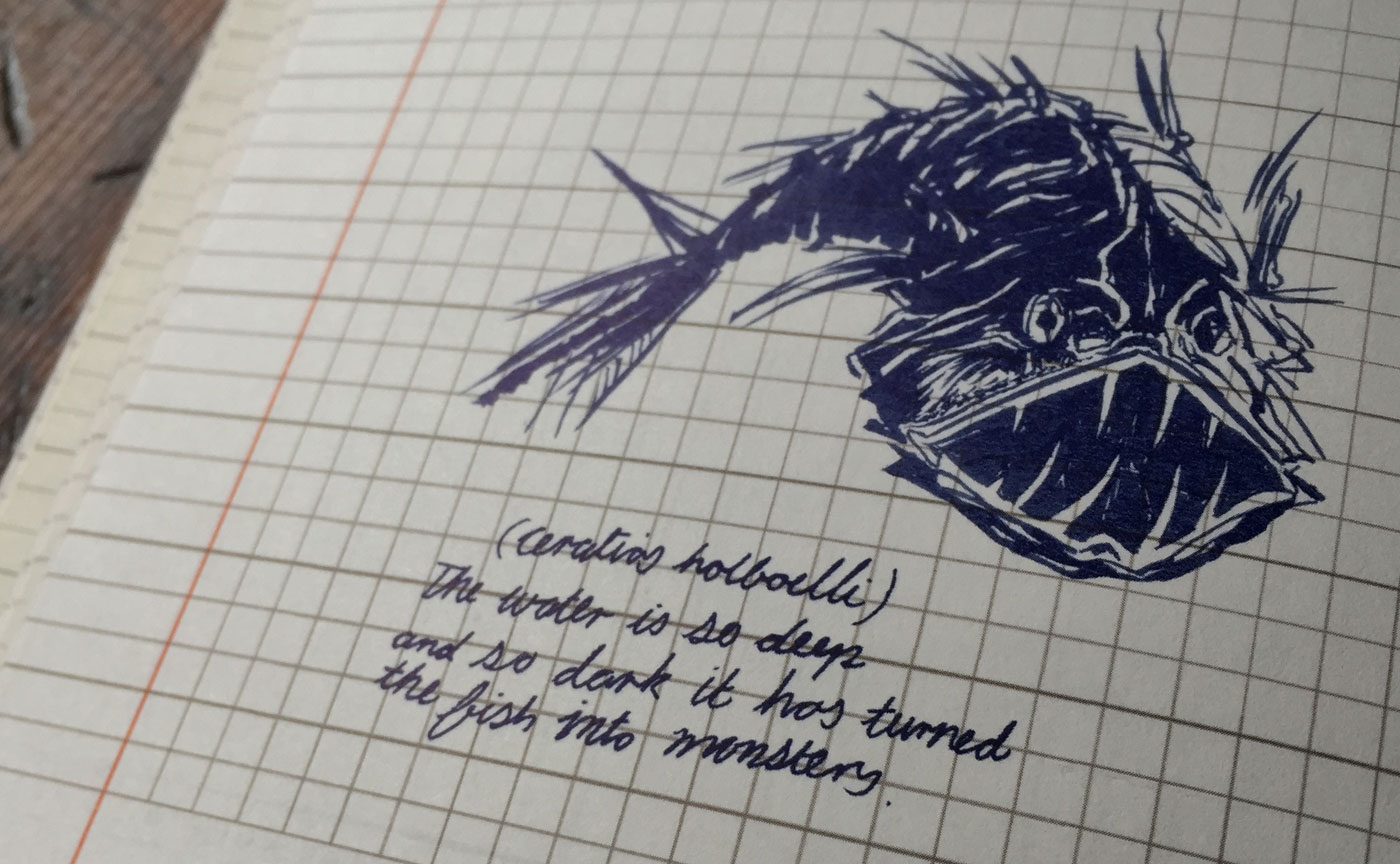 (ceratias holboelli)
The water is so deep
and so dark it has turned
the fish into monsters.